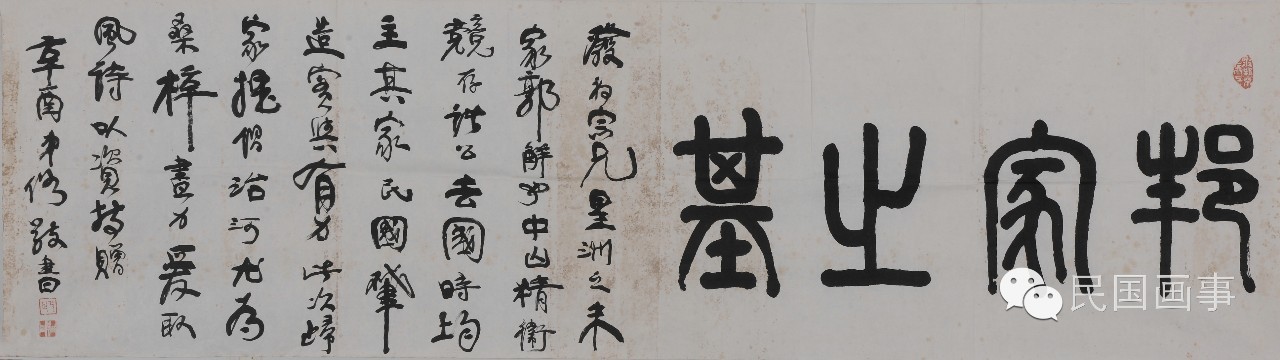 邦家之基
發宗兄星洲之朱
家郭解也中山精衛
競存諸公去國時均
主其家民國肇
造實與有力此次歸
家倡治河尤為
桑梓盡力爰取
風詩以資持贈
辛酉弟書
民国画事